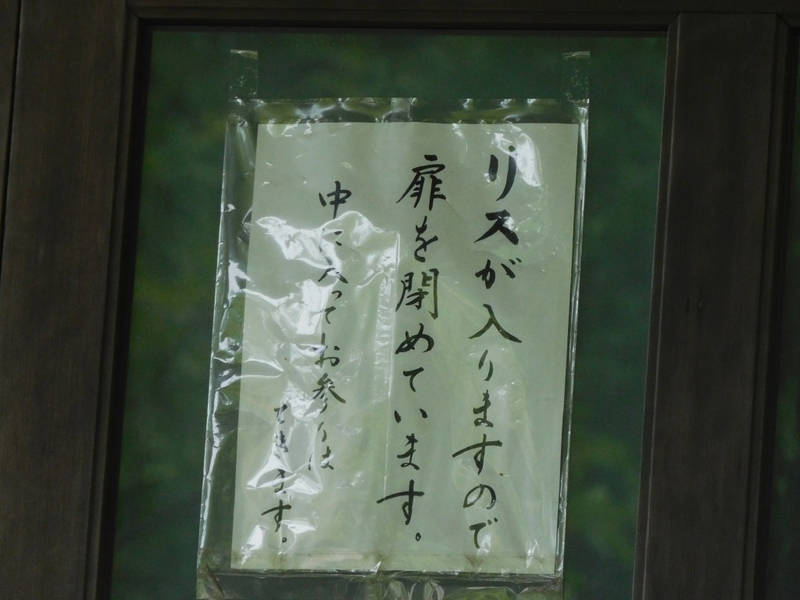 リスが入りますので
扉を閉めています。
中に入ってお参りは
できます。